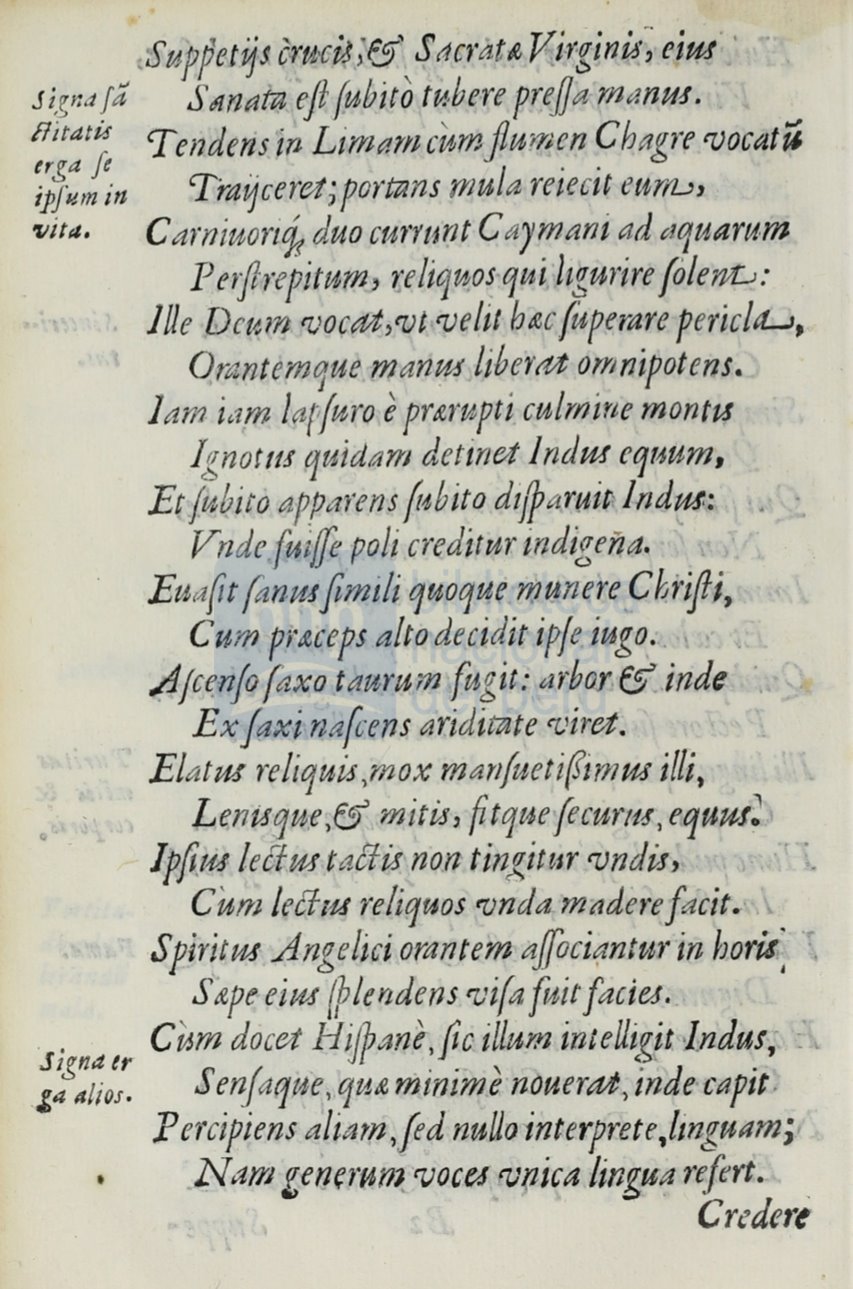 Suppetijs crucis, & Sacratæ Virginis, eius
Signa sã
ctitatis
erga se
ipsum in
vita.
Sanata est subitò tubere pressa manus.
Tendens in Limam cùm flumen Chagre vocatũ
Traijceret; portans mula reiecit eum,
Carniuoriq́ue duo currunt Caymani ad aquarum
Perstrepitum, reliquos qui ligurire solent:
Ille Deum vocat, vt velit hæc superare pericla,
Orantemque manus liberat omnipotens.
Iam iam lapsuro è prærupti culmine montis
Ignotus quidam detinet Indus equum,
Et subito apparens subito disparuit Indus:
Vnde fuisse poli creditur indigena.
Euasit sanus simili quoque munere Christi,
Cum præceps alto decidit ipse iugo.
Ascenso saxo taurum fugit: arbor & inde
Ex saxi nascens ariditate viret.
Elatus reliquis, mox mansuetissimus illi,
Lenisque, & mitis, fitque securus, equus.
Ipsius lectus tactis non tingitur vndis,
Cùm lectus reliquos vnda madere facit.
Spiritus Angelici orantem associantur in horis
Sæpe eius splendens visa fuit facies.
Cùm docet Hispanè, sic illum intelligit Indus,
Signa er
ga alios.
Sensaque, quæ minimè nouerat, inde capit
Percipiens aliam, sed nullo interprete, linguam;
Nam generum voces vnica lingua refert.
Credere